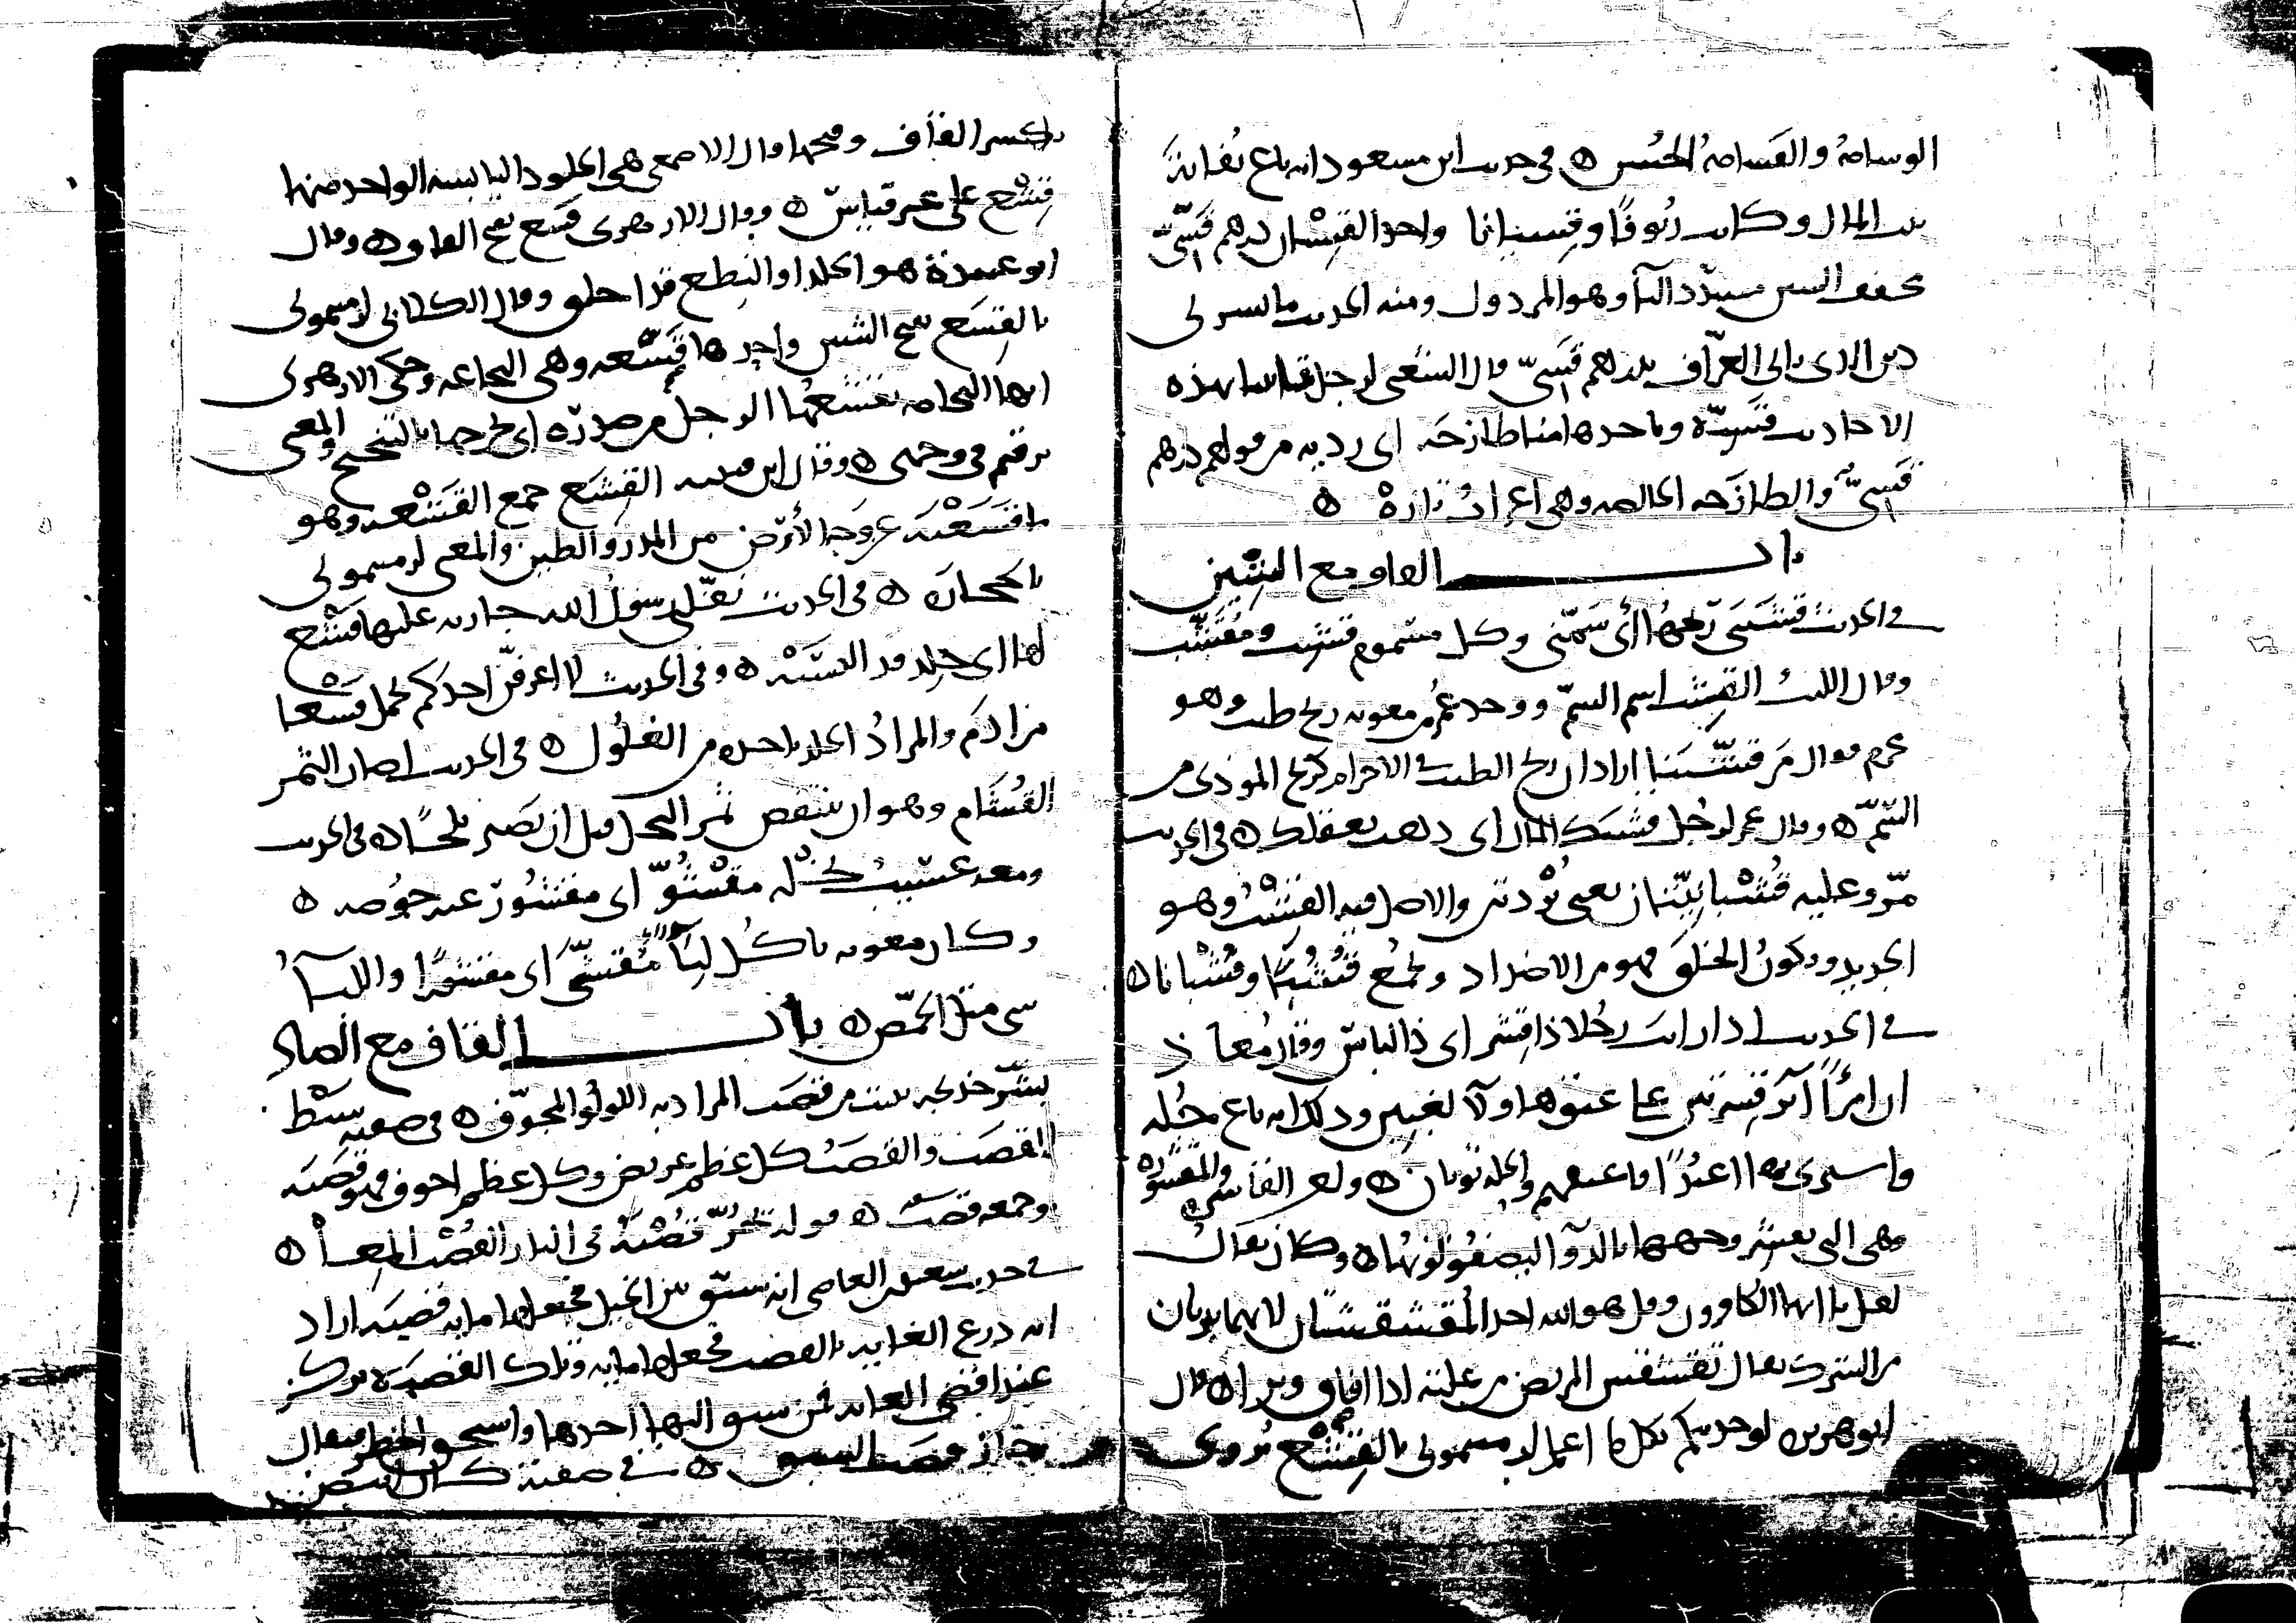 الوسامة والقسامة الحسن ه في حديث ابن مسعود انه باع نفاية
بيت المال وكانت زيوفًا وقسيانا واحد القسيان درهم قَسِيّ
مخفف السين مشدّد اليآ وهو المردول ومنه الحديث ما يسرني
دين الذي ياتي العرّاف بدرهم قَسِيّ قال الشعبي لرجل تاتينا بهذه
الاحاديث قسيّة وتاخذها منا طازجَة اي ردية من قولهم درهم
قَسِيٌّ والطازجَة الخالصة وهي اعراب تازهْ ه
باب القاف مع الشين
في الحديث قشَبَني ريحُها أي سَمّني وكل مسموم قشيب ومُقَشّب
وقال الليث القِشب اسم السمّ ووجد عمر من معوية ريح طيب وهو
محرم فقال مَن قشَبَنا اراد ان ريح الطيب في الاحرام كريح الموذي من
السّمّ ه وقال عمر لرجُل قشبك المال اي ذهب بعقلك ه في الحديث
مرّ وعليه قُشْبانيّتان يعني بُرْدتين والاصل فيه القشيبُ وهو
الجديد ويكونُ الخلَق فهو من الاضداد ويجمع قُشُبًا وقُشْبانا ه
في الحديث اذا رايت رجُلا ذا قِشر اي ذا لباس وقال مُعاذ
ان امرءًا آثر قشرتين على عتق هاولآ لغبين وذلك انه باع حُلّة
واشترى بها اعبُدًا فاعتقهم والحلة ثوبان ه ولعن القاشرة والمقشورة
وهي التي يقشر وجهها بالدوآ ليصفُو لونُها ه وكان يقال
لقل يا ايها الكافرون وقل هو الله احد المُقَشقِشتان لانهما يبريان
من الشرك يقال تقشقش المريض من علته اذا افاق وبرا ه قال
ابو هريرة لو حدثتكم بكل ما اعلم لرميتموني بالقِشَع يُروى
بكسر القاف وفتحها وقال الاصمعي هي الجلود اليابسة الواحد منها
قِشْع على غير قياسٍ ه وقال الازهري قشع بفتح القاف ه وقال
ابو عبيدة هو الجلد او النطع قد اخلق وقال الكلابي لرميتموني
بالقِشَع بفتح الشين واحدها قَشْعة وهي النخاعة وحكى الازهري
انها النخامة يقشعُها الرجل من صدره اي يخرجها بالتنخم والمعنى
بزقتم في وجهي ه وقال ابن قتيبة القِشَع جمع القَشْعة وهو
ما قشَعْتَه عن وجه الأرض من المدر والطين والمعنى لرميتموني
بالحجارة ه في الحديث نفّلني رسولُ الله جارية عليها قَشْع
لها اي جلد قد الستَهْ ه وفي الحديث لا اعرفنّ احدكم يحمل قشعا
من ادَم والمرادُ الجلد ياخذه من الغلُول ه في الحديث اصاب الثمر
القُشام وهو ان ينتقص ثمر النخل قبل ان يَصير بلحًا ه في الحديث
ومعه عسيبُ نخلة مقْشُوٌّ اي مقشُورٌ عنه خُوصه ه
وكان معوية ياكل لِيَآ مُقَشّى اي مقشورًا والليآ
شي مثل الحمّص ه باب القاف مع الصاد
بشّر خديجة ببيت من قصَب المراد به اللولُو المجوّف ه في صفته سَبْط
القصَب والقصَبُ كل عظم عريض وكل عظم اجوف فهو قصَبة
وجمعه قصَب ه قوله يجُرّ قُصْبَهُ في النار القُصْب المِعا ه
في حديث سعيد بن العاص انه سبّق بين الخيل فجعلها ماية قصبة اراد
انه ذرع الغاية بالقصب فجعلها ماية وتلك القصبة تركز
عند اقصى الغاية فمن سبق اليها اخذها واستحق الخطر فيقال
حاز قصَب السبق ه في صفته كان ابيض